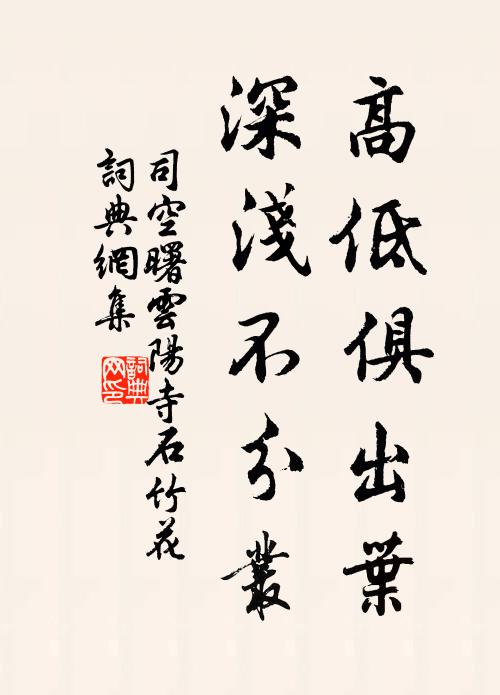 高低俱出葉
深淺不分叢
司空曙雲陽寺石竹花
詞典網集
詞典
网印